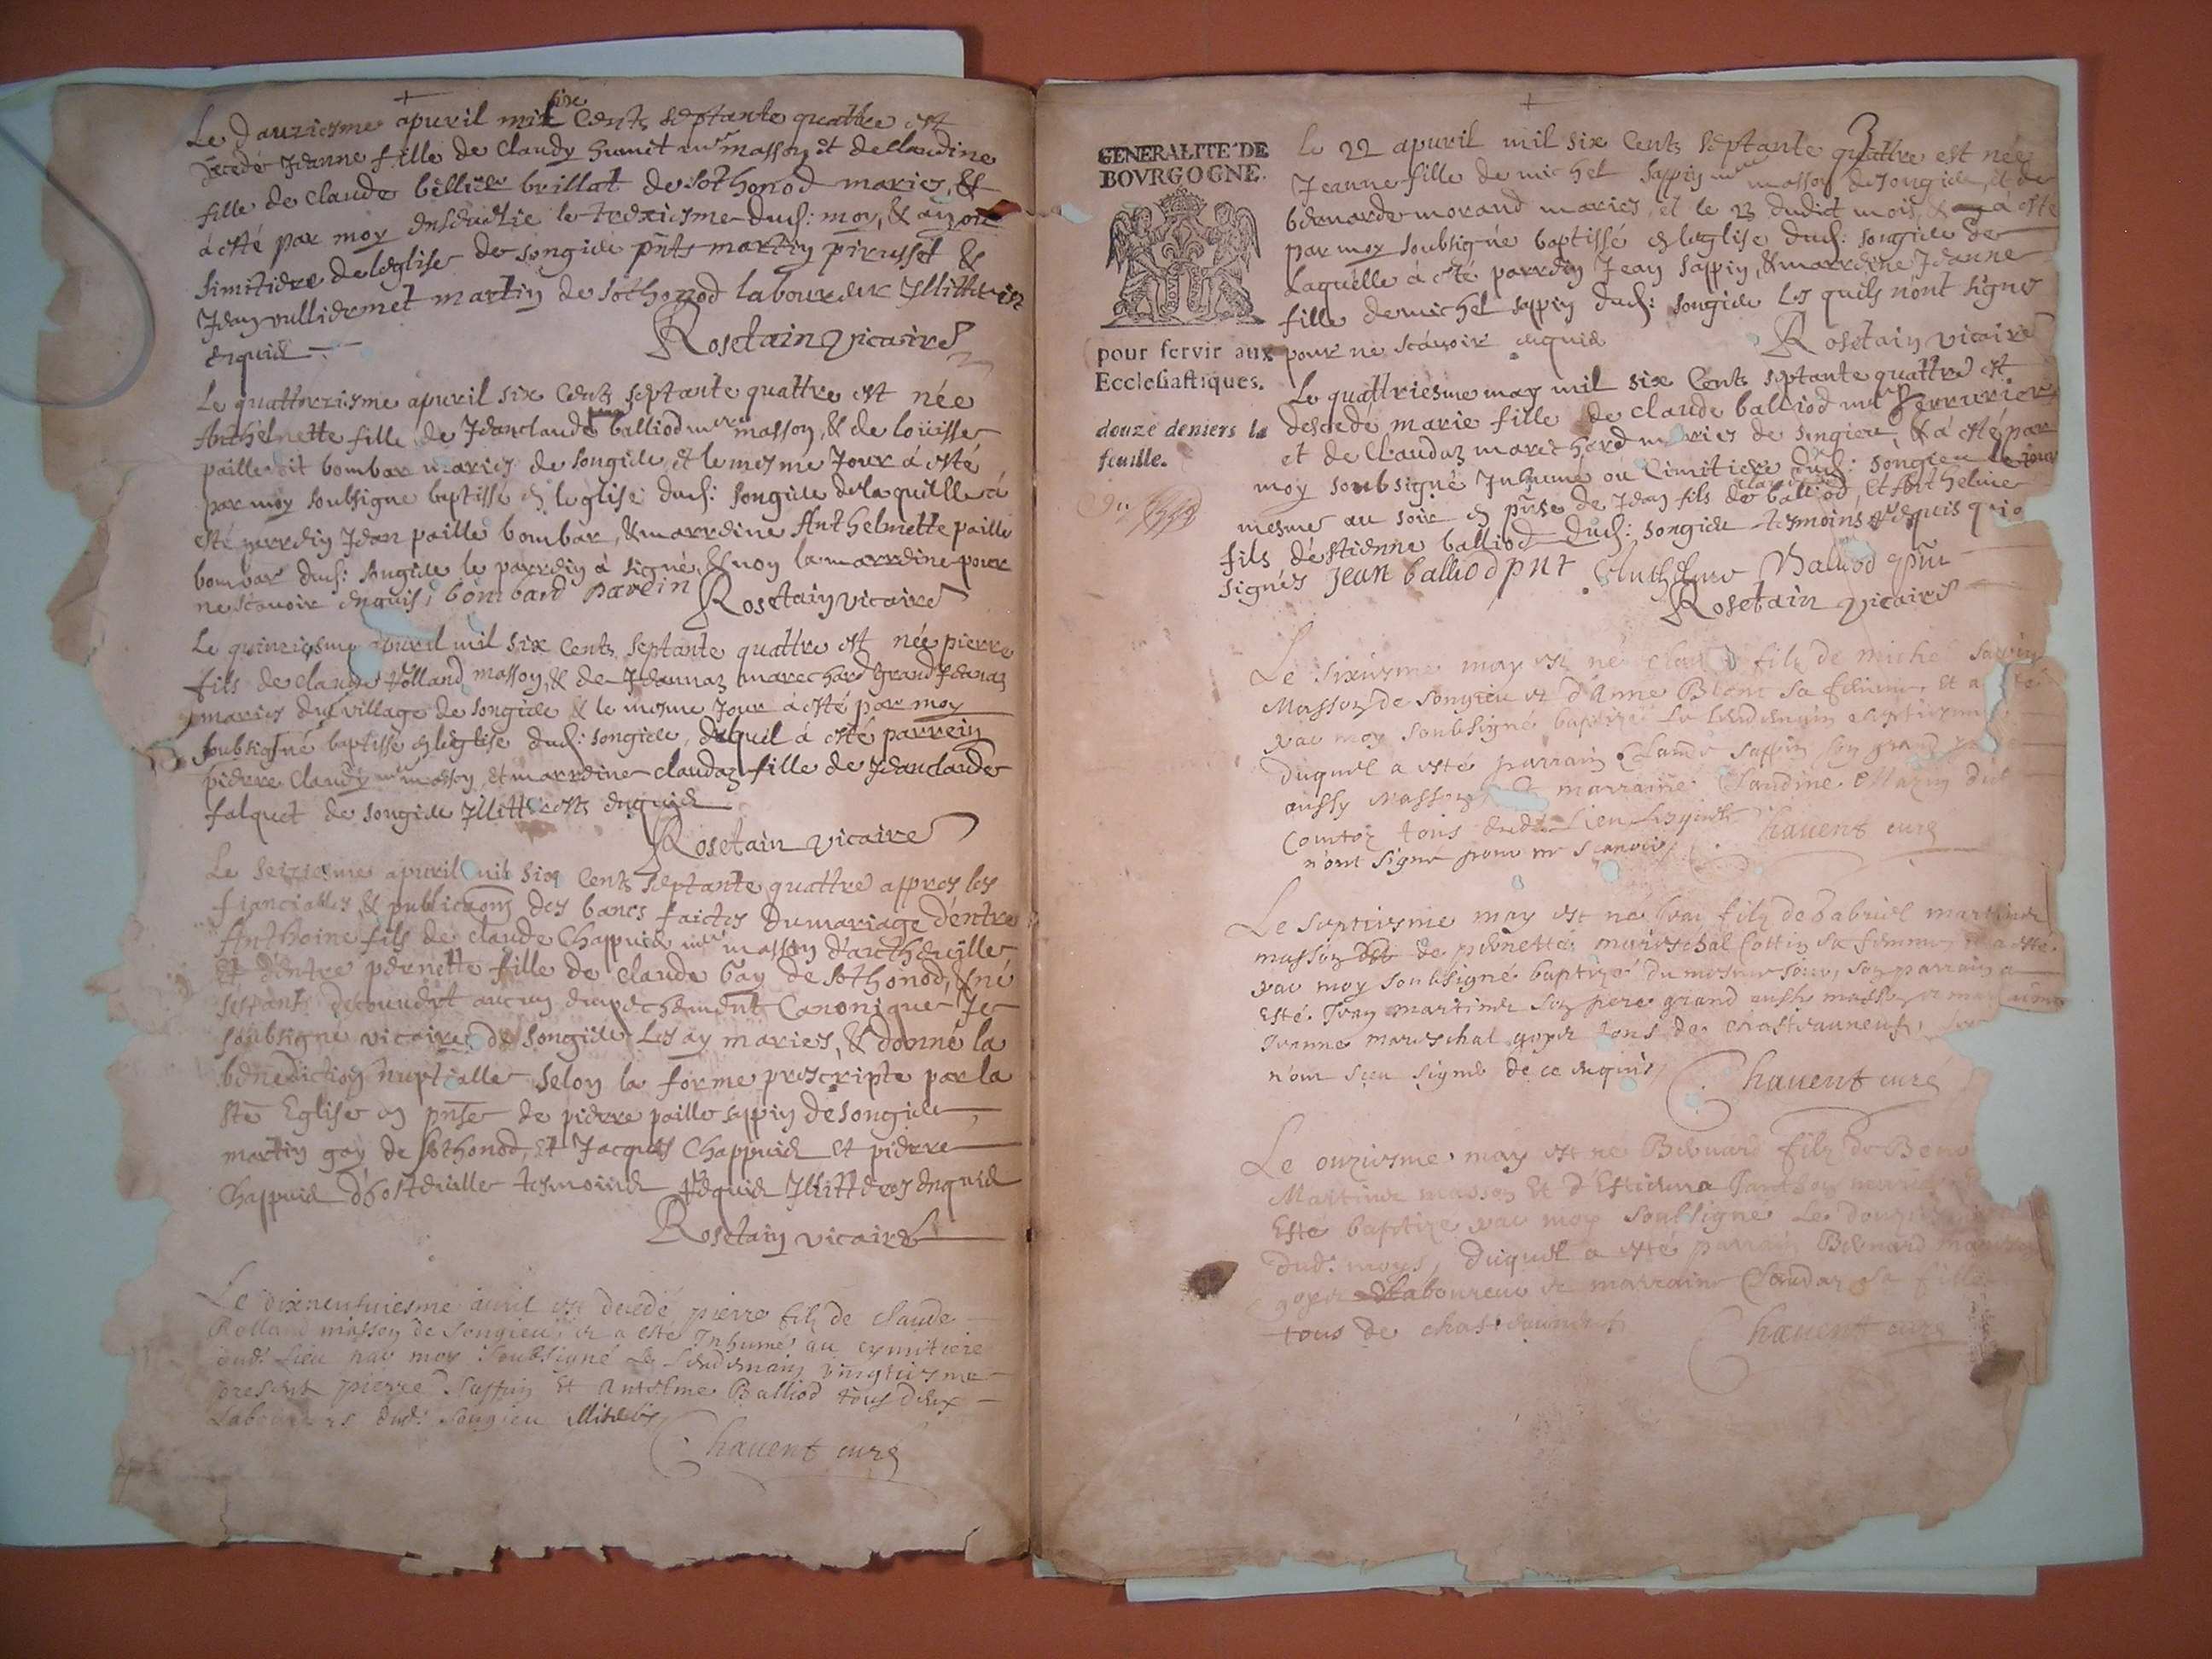 Le dauziesme apuril mil six Cents septante quattre est
decedé Jeanne fille de Claudy humit mre masson et de Claudine
fille de Claude bellier brillat de sothonod maries, &
à esté par moy le trexiesme dud: moy, &
simitiere de leglise de songieu pnts martin pirusset &
Jean vulliermet martin de sothonod laboureur Illitteres
enquis
Rosetain vicaire
Le quattorziesme apuril six Cents septante quattre est née
Anthelmette fille de Jeanclaude balliod mre masson, & de loüisse
paille dit bombar maries de songieu, et le mesme Jour à esté
par moy soubsigne baptissé en leglise dud: songieu de laquelle à
esté parrein Jean paille bombar, & marreine Anthelmette paille
bombar dud: songieu le parrein à signé, & non la marreine pour
ne scavoir enquis, bombard parein Rosetain vicaire
Le quinziesme apuril mil six Cents septante quattre est née pierre
fils de claude rolland masson, & de Jeannaz marechard grand Jeanaz
maries du village de songieu & le mesme Jour à esté par moy
soubsigné baptisse en leglise dud: songieu, duquel à esté parrein
pierre Claudy mre masson, et marreine claudaz fille de Jeanclaude
falquet de songieu Illitteres enquis
Rosetain vicaire
Le seiziesme apuril mil six Cents septante quattre appres les
fianciables & publicaons des bancs faictes du mariage d'entre
Anthoine fils de claude Chappuis mre masson d'
Et d'entre pernette fille de claude Gay de sothonod, & né
sestant decouvert aucun empechement Canonique Je
soubsigne vicaire de songieu Les ay maries, & donné la
benediction nuptialle selon la forme prescripte par la
ste Eglise en pnse de pierre paille sappin de songieu
martin gay de sothonod, et Jacques Chappuis et pierre
Chappuis d'hosteville tesmoins requis Illitteres enquis
Rosetain vicaire
Le dixneufuiesme auril est decedé pierre filz de Claude
Rolland masson de Songieu, et a esté Inhumé au cymitiere
dud: Lieu par moy soubsigné Le Lendemain vingtiesme
present pierre Sappin et Antelme Balliod tous deux
Laboureurs dud: Songieu illiteres
Chauent curé
GENERALITE DE
BOVRGOGNE.
pour servir aux
Ecclesiastiques.
douze deniers la
feuille.
3
Le 22 apuril mil six Cents septante quattre est née
Jeanne fille de michel sappin mre masson de songieu, et de
bernarde morand maries, et le 23 dudict mois, & à esté
par moy soubsigné baptissé en leglise dud: songieu de
Laquelle à esté parrein Jean sappin, & marreine Jeanne
fille de michel sappin dud: songieu Les quels n'ont signes
pour ne scavoir enquis Rosetain vicaire
Le quattriesme may mil six Cents septante quattre est
descedé marie fille de claude balliod mre Serrurier
et de Claudaz marechard maries de songieu, & a esté par
moy soubsigné Inhumé au Cimitiere dud: songieu le jour
mesme au soir en pnse de Jean fils de claude balliod, et Anthelme
fils d'estienne balliod dud: songieu tesmoins requis qui o
signés Jean balliod pnt Anthelme Balliod pnt
Rosetain vicaire
Le sixiesme may est né filz de michel sappin
Masson de Songieu et d'Anne Blanc sa femme, et a esté
par moy soubsigné baptizé Le Lendemain septiesme
duquel a esté parrain Claude Sappin son grand
aussy Masson, & marraine Claudine
Comtoz tous dud. Lieu Lesquels
n'ont signé pour ne scavoir Chauent curé
Le septiesme may est né Jean filz de Gabriel martinet
masson de pernette mareschal Cottin sa femme, et a esté
par moy soubsigné baptizé du mesme jour, son parrain a
esté Jean martinet son pere grand aussy masson et marraine
Jeanne mareschal tous de chasteauneuf,
n'ont sceu signé de ce enquis Chauent curé
Le onziesme may est né Bernard filz de
Martinet masson et d'Estienna
Esté baptize par moy soubsigné Le douziesme
dud: moys, duquel a esté parrain Bernard
laboureur et marraine Claudaz sa fille
tous de chasteauneuf Chauent curé